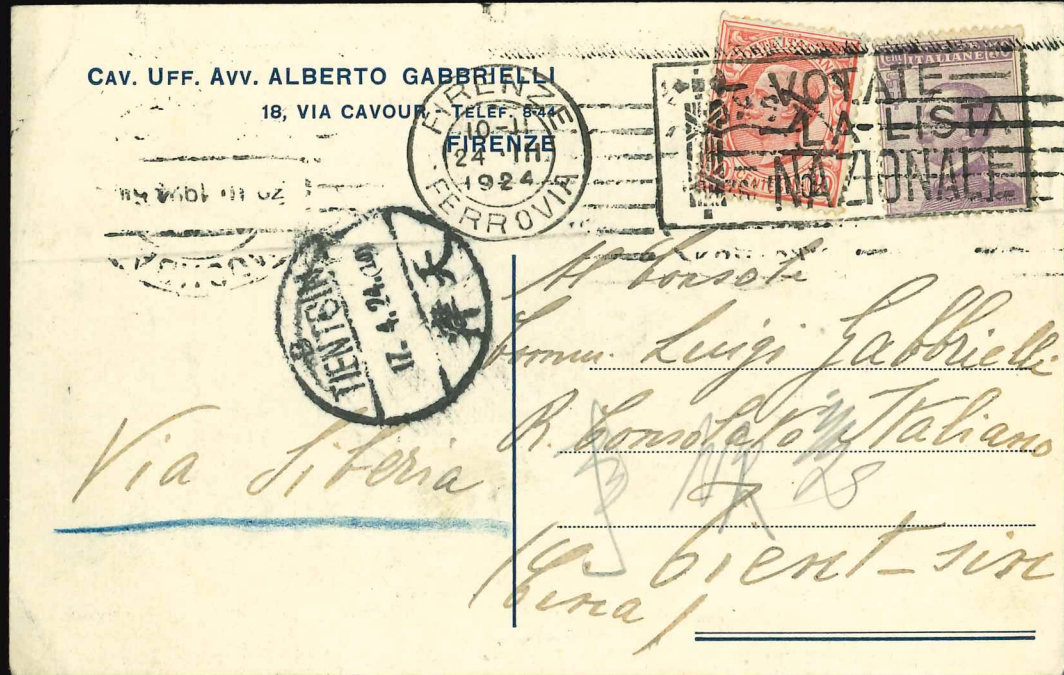 CAV. UFF. AVV. ALBERTO GABBRIELLI
18, VIA CAVOUR - TELEF. 8-44
FIRENZE
FIRENZE
10-11
24 III
1924
FERROVIA
VOTATE
LA LISTA
NAZIONALE
ITALIANE
TIENTSIN
17.4.24
天津
Al Console
Comm. Luigi Gabbrielli
R. Consolato Italiano
Tient-sin
(Cina)
Via Siberia